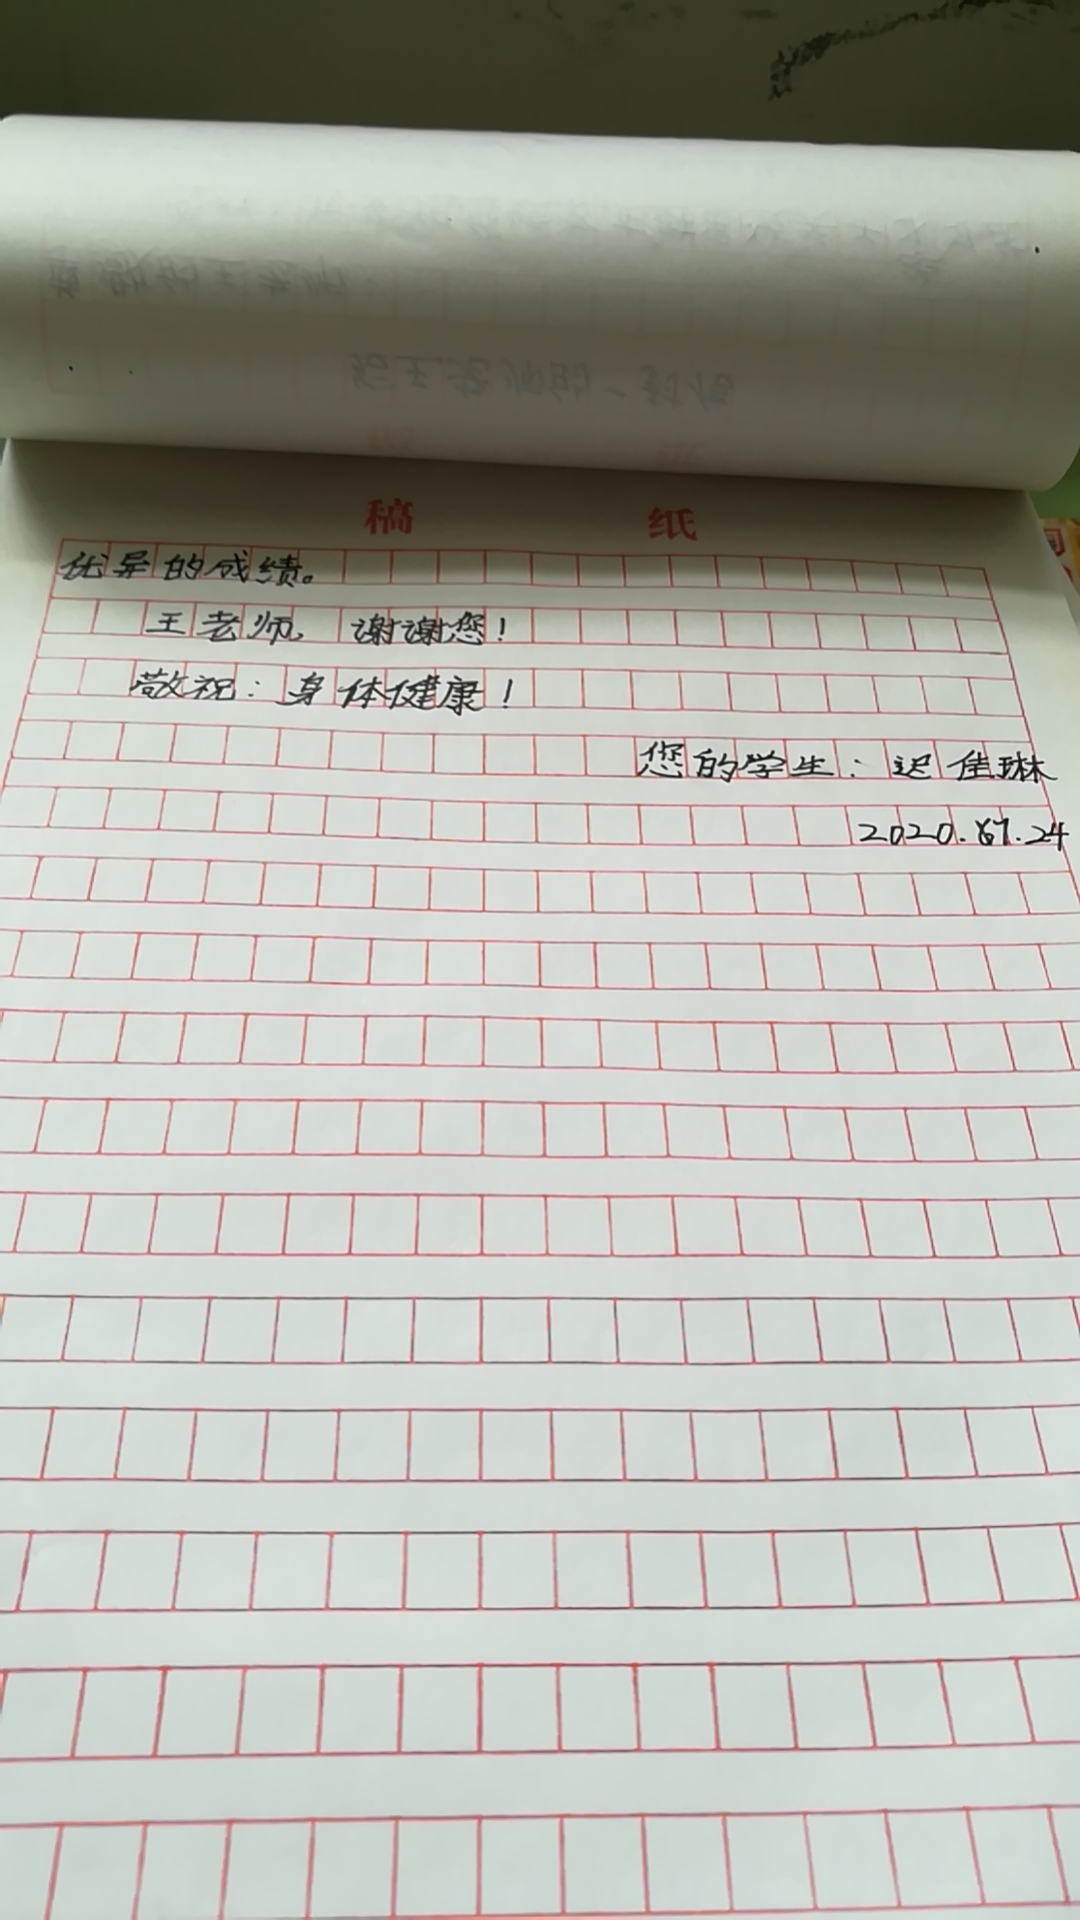 稿 纸
优异的成绩。
王老师，谢谢您！
敬祝：身体健康！
您的学生：迟佳琳
2020.7.24